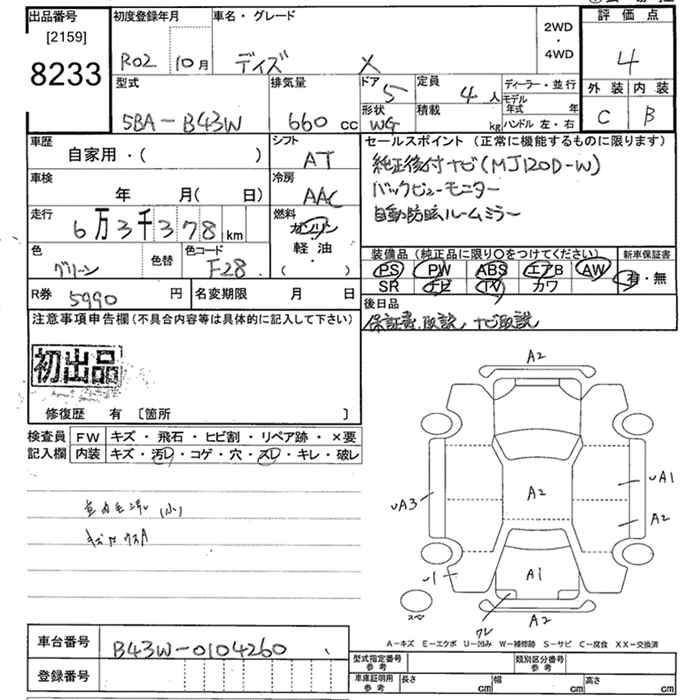 出品番号
[2159]
8233
初度登録年月
R02 10月
車名・グレード
デイズ X
2WD
・
4WD
評価点
4
外装 内装
C B
型式
5BA-B43W
排気量
660 cc
ドア 5
形状 WG
定員 4人
積載 kg
ディーラー・並行
モデル年式 年
ハンドル 左・右
車歴
自家用・( )
シフト
AT
車検
年 月( 日)
冷房
AAC
走行
6万3千378km
燃料
ガソリン
・
軽油
( ・ )
色
グリーン
色替
色コード
F28
R券 5990円
名変期限 月 日
セールスポイント(正常に機能するものに限ります)
純正後付ナビ(MJ120D-W)
バックビューモニター
自動防眩ルームミラー
装備品(純正品に限り○をつけてください)
新車保証書
PS PW ABS エアB AW
SR ナビ TV カワ
有・無
後日品
保証書、取説、ナビ取説
注意事項申告欄(不具合内容等は具体的に記入して下さい)
初出品
修復歴 有〔箇所 〕
検査員記入欄
FW キズ・飛石・ヒビ割・リペア跡・×要
内装 キズ・汚レ・コゲ・穴・スレ・キレ・破レ
A2
A2
UA1
UA3
A2
A1
U1
スペア
ワレ
A2
A-キズ E-エクボ U-凹み W-補修跡 S-サビ C-腐食 XX-交換済
車台番号
B43W-0104260
登録番号
型式指定番号
参考
類別区分番号
参考
車庫証明用
参考
長さ cm
幅 cm
高さ cm